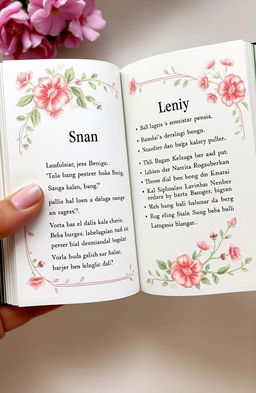 Snan
Laufolsiar, jers Beniga:
'Tula bang pastek hoka Serig,
Sanga kalan, bang?
pallis hal losn a dalaga nenga
an ragess?.
Vorta bas el dalis kala cheris.
Beba burges, labelagsian tudi sit
perster bial desmiandal lagolar
Vorla buda galich sur balar.
barjer hen lelnglic dali?
Leniy
• Ball lagais a semistar pensia.
• Bamdal's derslngi benga.
• Nganlier dan balga kalsry puller.
• Thli Bagan Kelsaga bar aad pat.
• Labien der Narcita Rogauberkan
• Throse dial ben bong dan Kmara
• Kal Siploalan Lavinbas Nenher
cedara by barta Basuger, logian
• Weh bang bali halunar da berg
• Rug eling Stain Sung baba balli
Latngasia blangar.